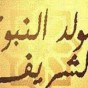 مولد النبوي
الشريف